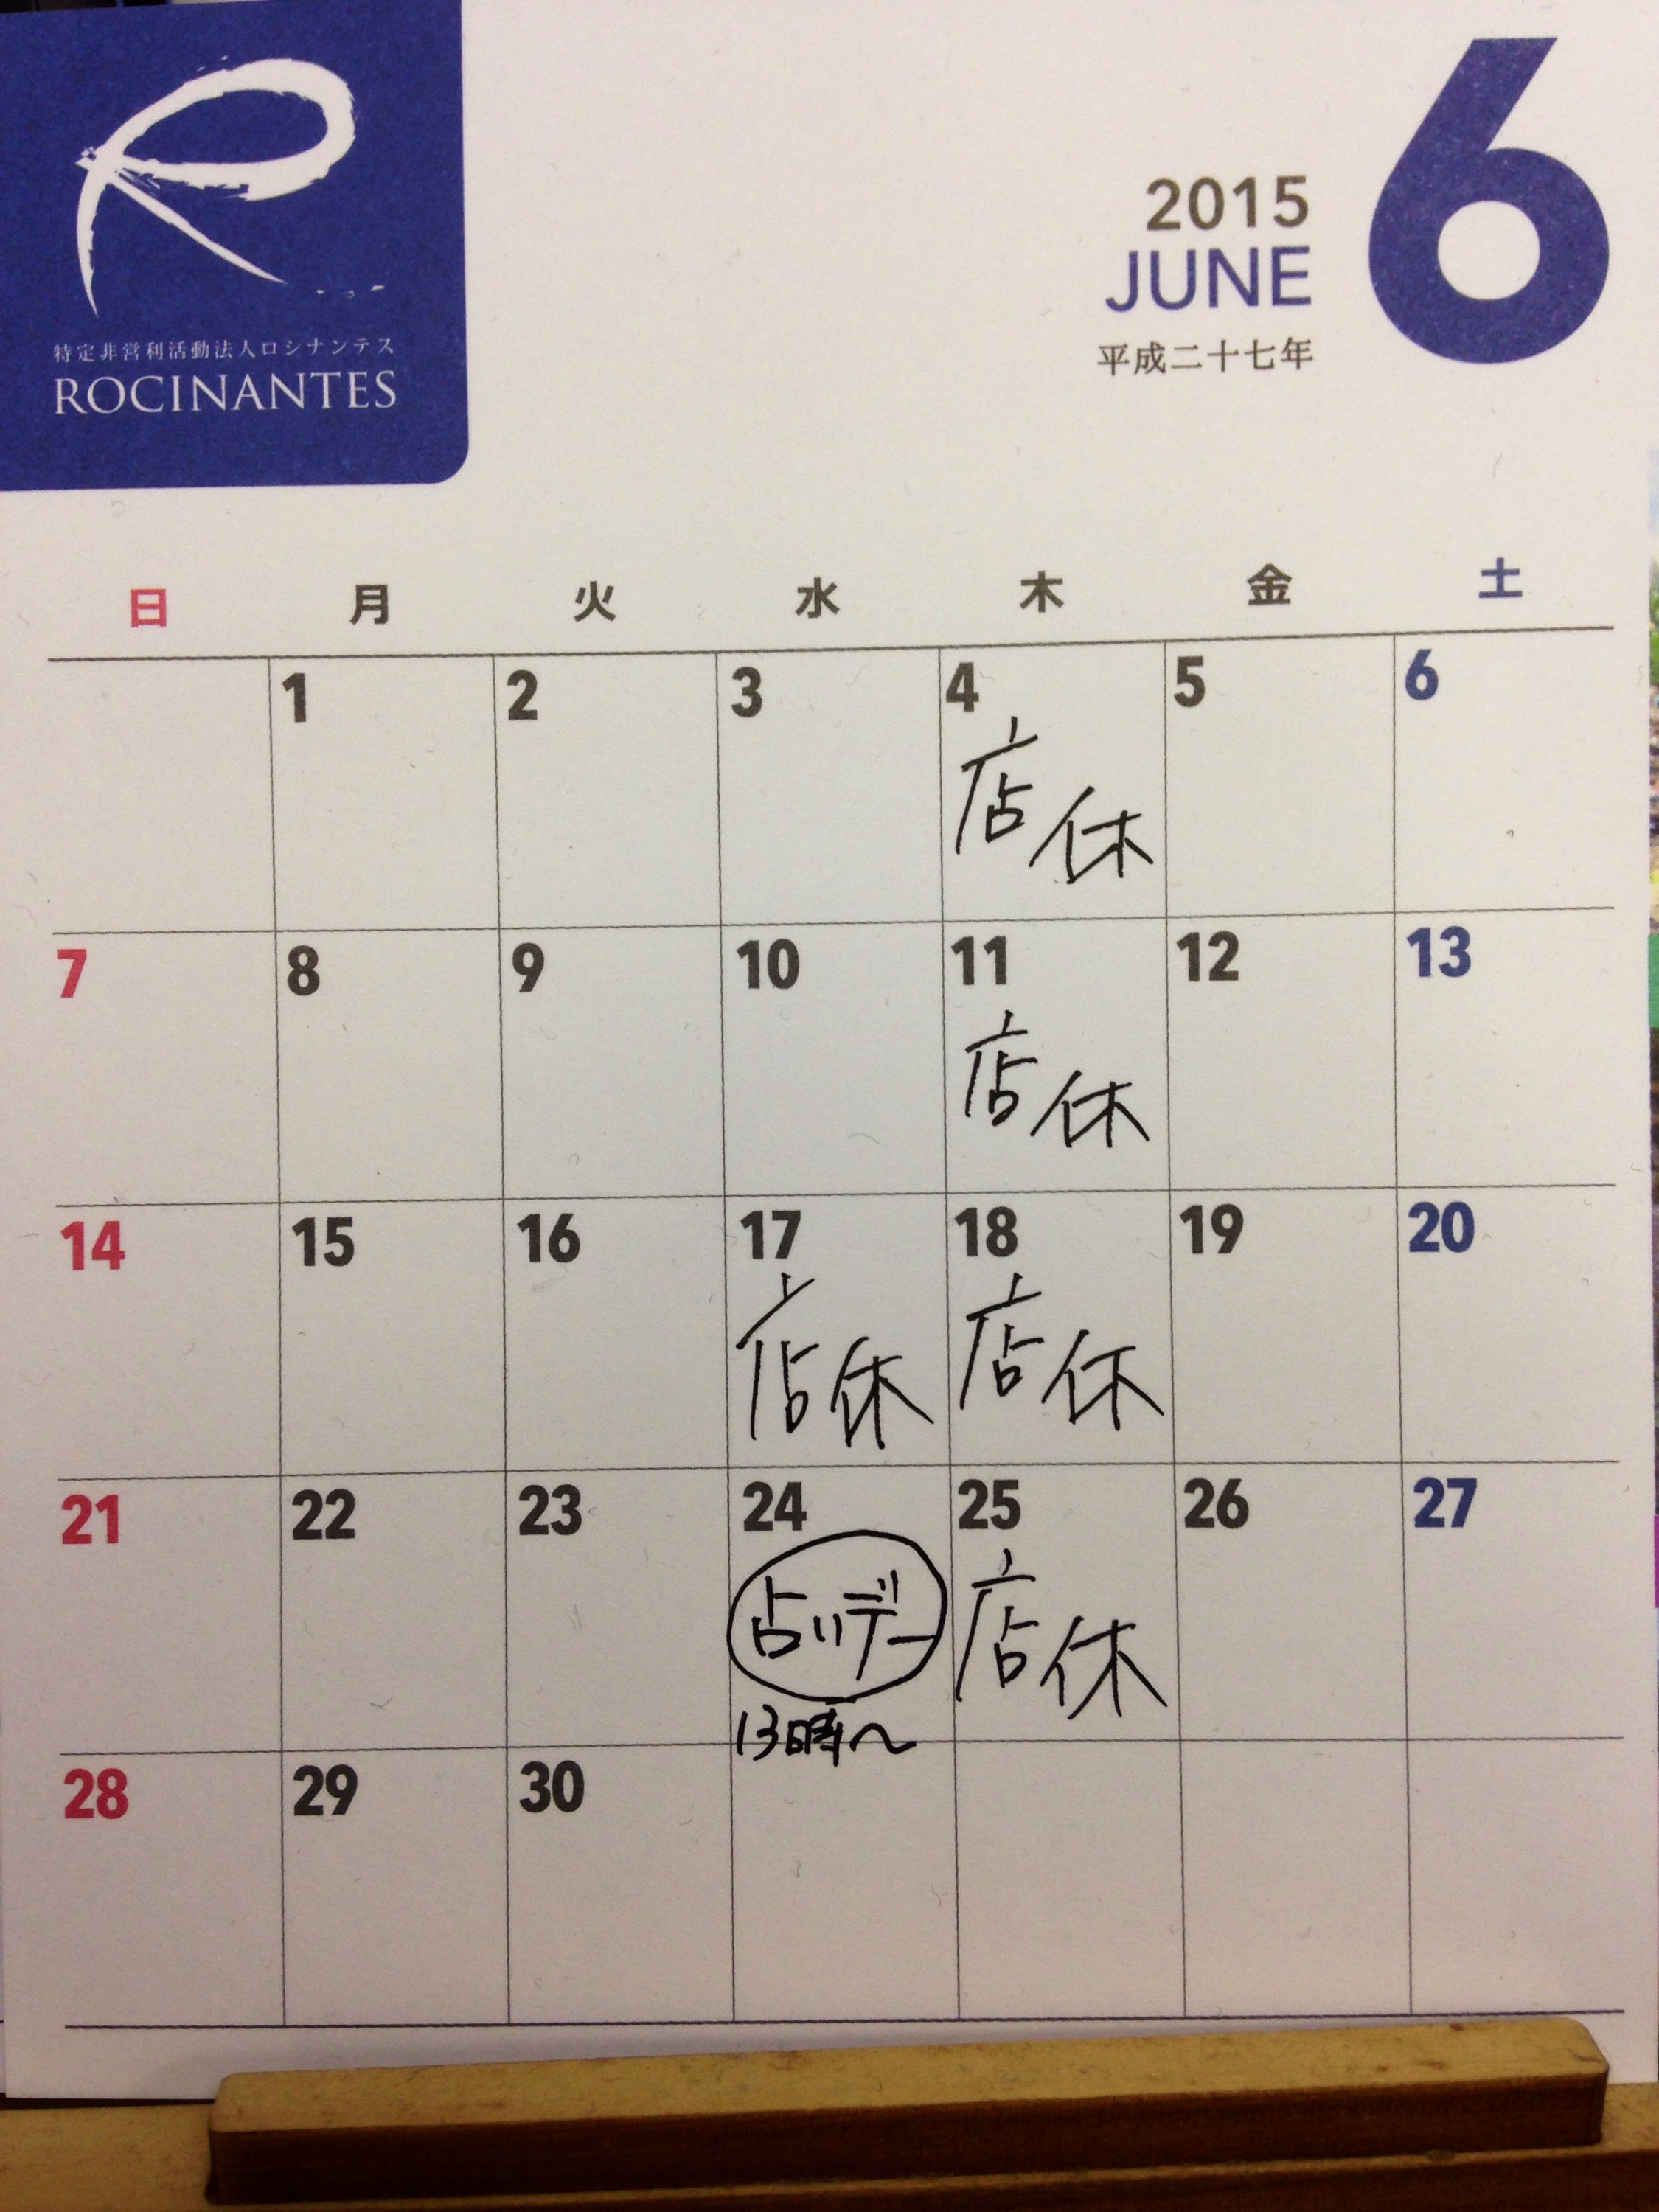 特定非営利活動法人ロシナンテス
ROCINANTES
2015
JUNE
平成二十七年
6
日 月 火 水 木 金 土
1 2 3 4 5 6
店休
7 8 9 10 11 12 13
店休
14 15 16 17 18 19 20
店休 店休
21 22 23 24 25 26 27
占いデー 店休
13時〜
28 29 30